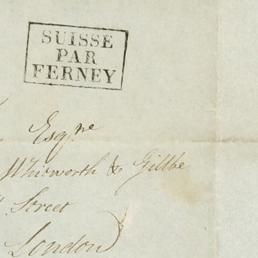 SUISSE
PAR
FERNEY
Esqre
Whitworth & Gillbe
Street
London